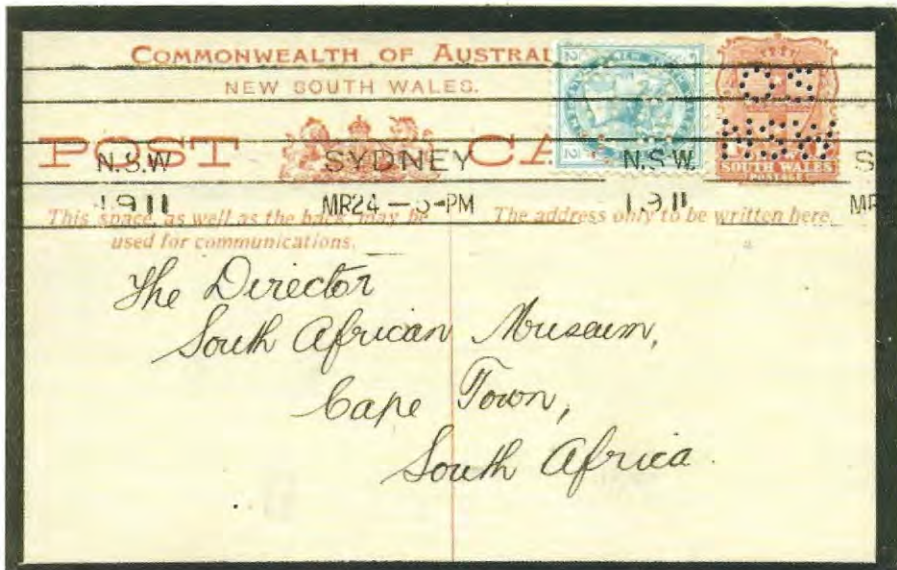 COMMONWEALTH OF AUSTRAL
NEW SOUTH WALES.
POST CA
2 2
2 2
OS
NSW
SOUTH WALES
POSTAGE
N.S.W SYDNEY N.S.W. S
1911 MR24 – 5-PM 1911 MR
This space, as well as the back, may be
used for communications.
The address only to be written here.
The Director
South African Museum,
Cape Town,
South Africa.